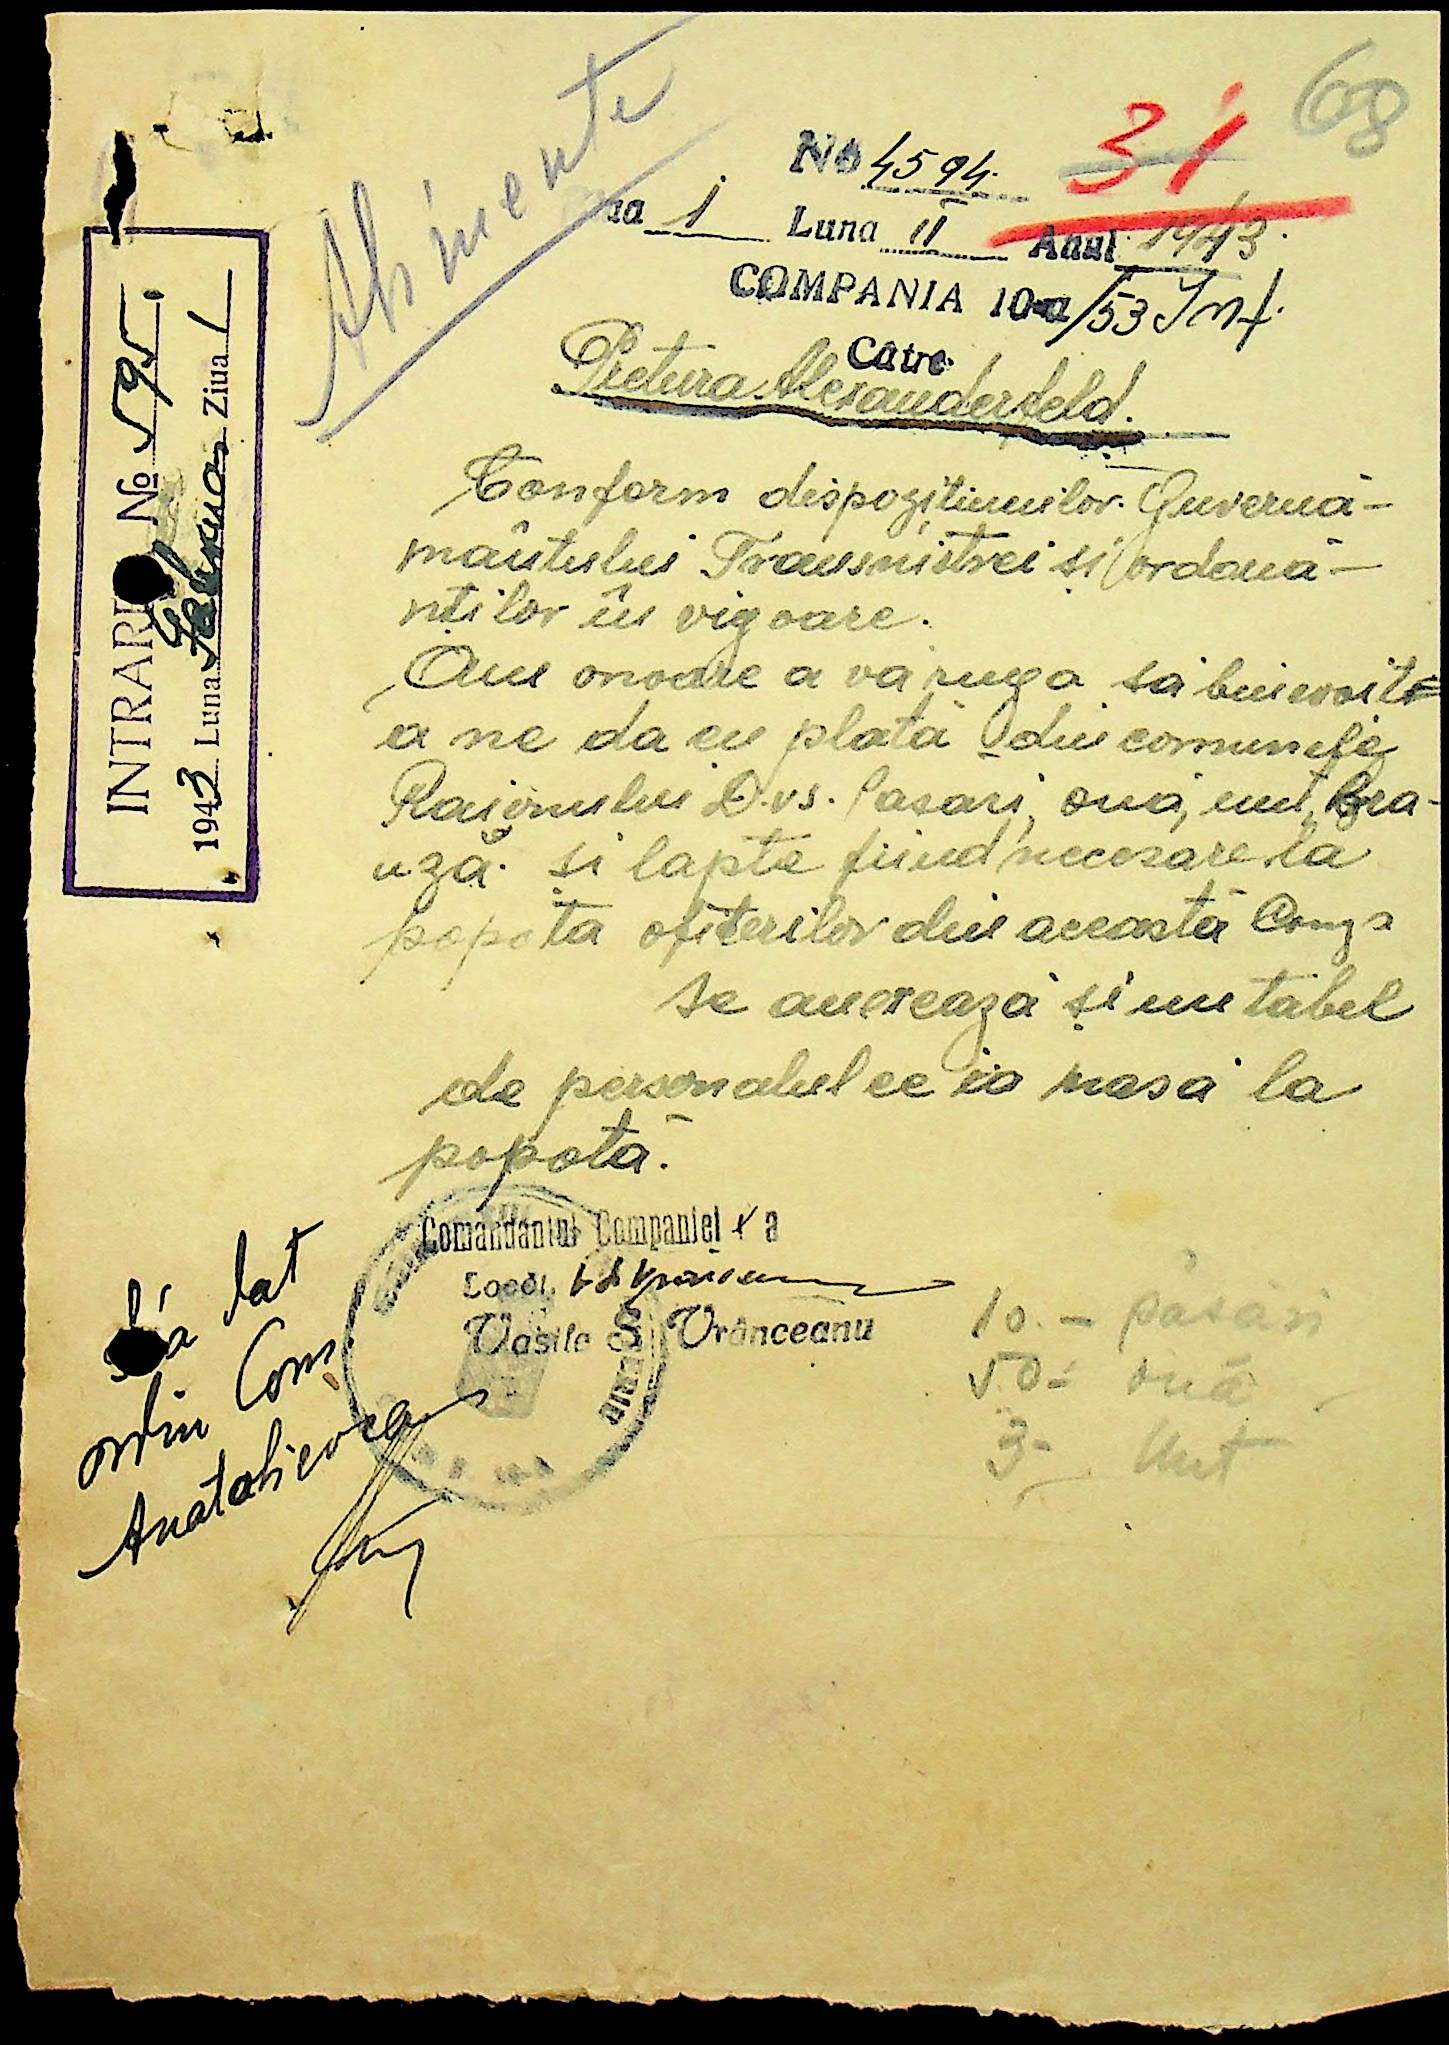 68
31
Alimente
No 4594.
ua 1 Luna II Anul 1943.
COMPANIA 10-a/53 Inf.
Către
Pretura Alexanderfeld.
INTRARE No 595
1943 Luna Februar Ziua 1
Conform dispozițiunilor Guvernă-
mântului Transnistrei si ordona-
nților în vigoare.
Am onoare a vă ruga să binevoiți
a ne da cu plată din comunele
Raionului D.vs. Pasari, ouă, unt, Bra-
nză. si lapte fiind necesare la
popota ofiterilor din această Comp
Se anexează și un tabel
de personalul ce ia masa la
popotă.
Comandantul Companiei X a
Locot.
Vasile S. Vrânceanu
S'a dat
ordin Com
Anatolievca
10.- păsări
50- ouă
3- Unt